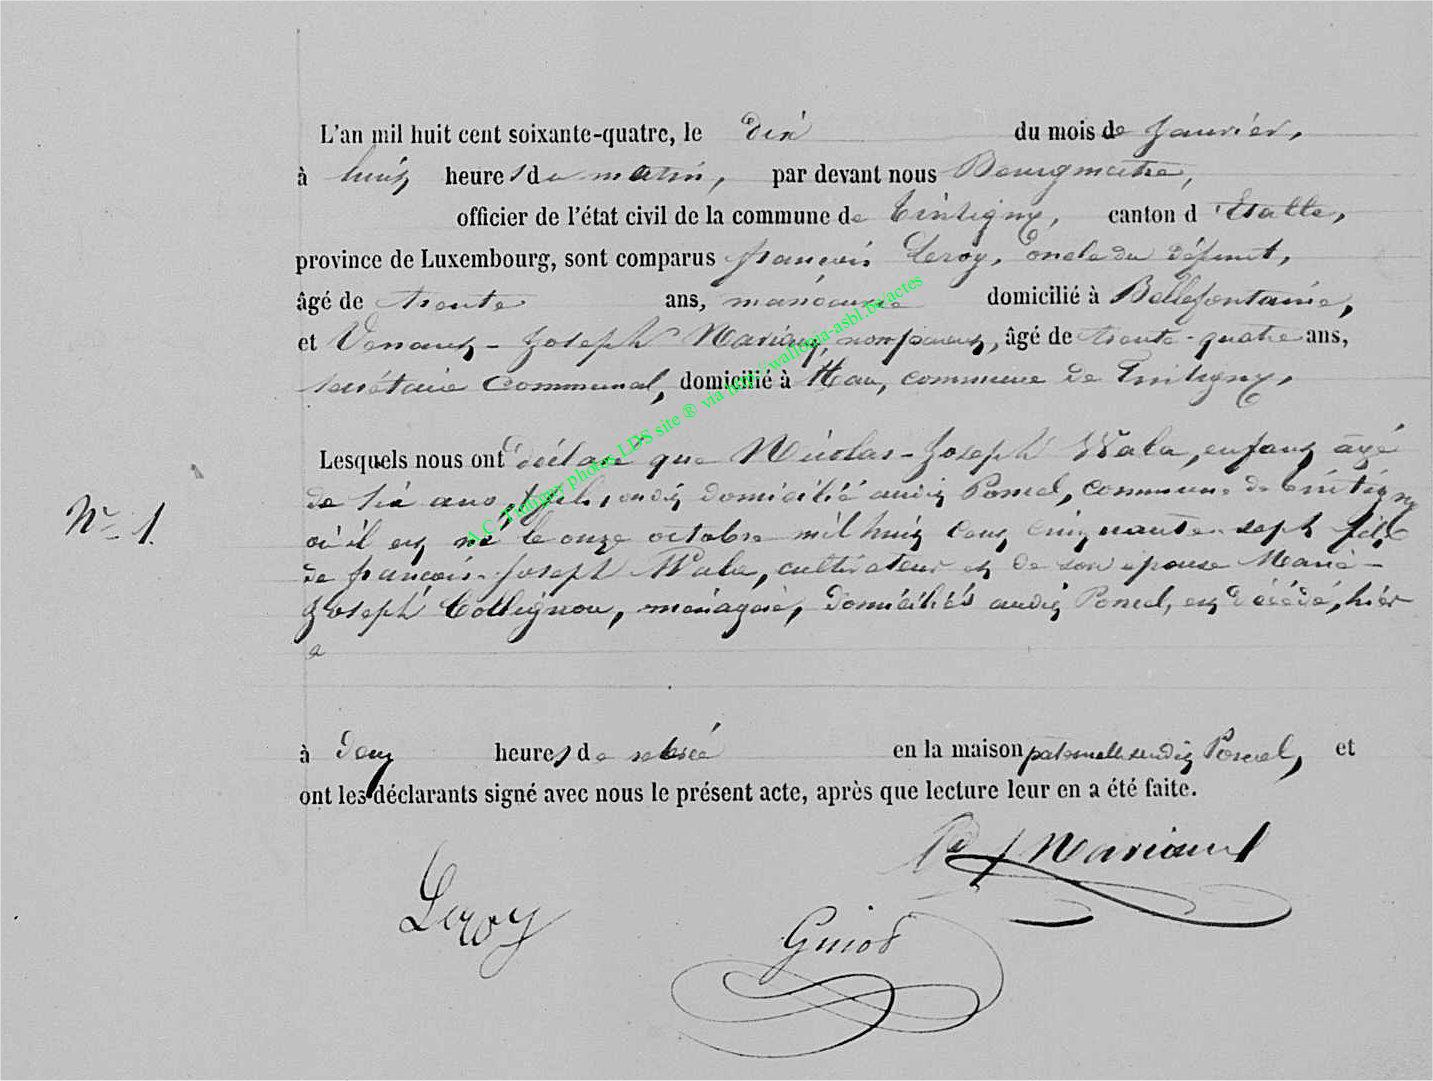 L'an mil huit cent soixante-quatre, le dix du mois de Janvier,
à huit heures de matin, par devant nous Bourgmestre,
officier de l'état civil de la commune de Tintigny, canton d'Etalle,
province de Luxembourg, sont comparus françois Leroy, oncle du défunt,
âgé de trente ans, domicilié à Bellefontaine,
et Joseph non parent, âgé de trente-quatre ans,
secrétaire communal, domicilié à Han, commune de Tintigny,
Lesquels nous ont déclaré que Nicolas-Joseph Wala, enfant âgé
de six ans, domicilié audit Poncel, commune de Tintigny
où il est né le onze octobre mil huit cent cinquante-sept fils
de françois-Joseph Wala, cultivateur et de son épouse Marie-
Joseph Collignon, ménagère, domiciliés audit Poncel, est décédé, hier
N° 1.
à deux heures de relevée en la maison paternelle audit Poncel, et
ont les déclarants signé avec nous le présent acte, après que lecture leur en a été faite.
Leroy
Guiot
A.C. Tintigny photos LDS site ® via http://wallonia-asbl.be/actes